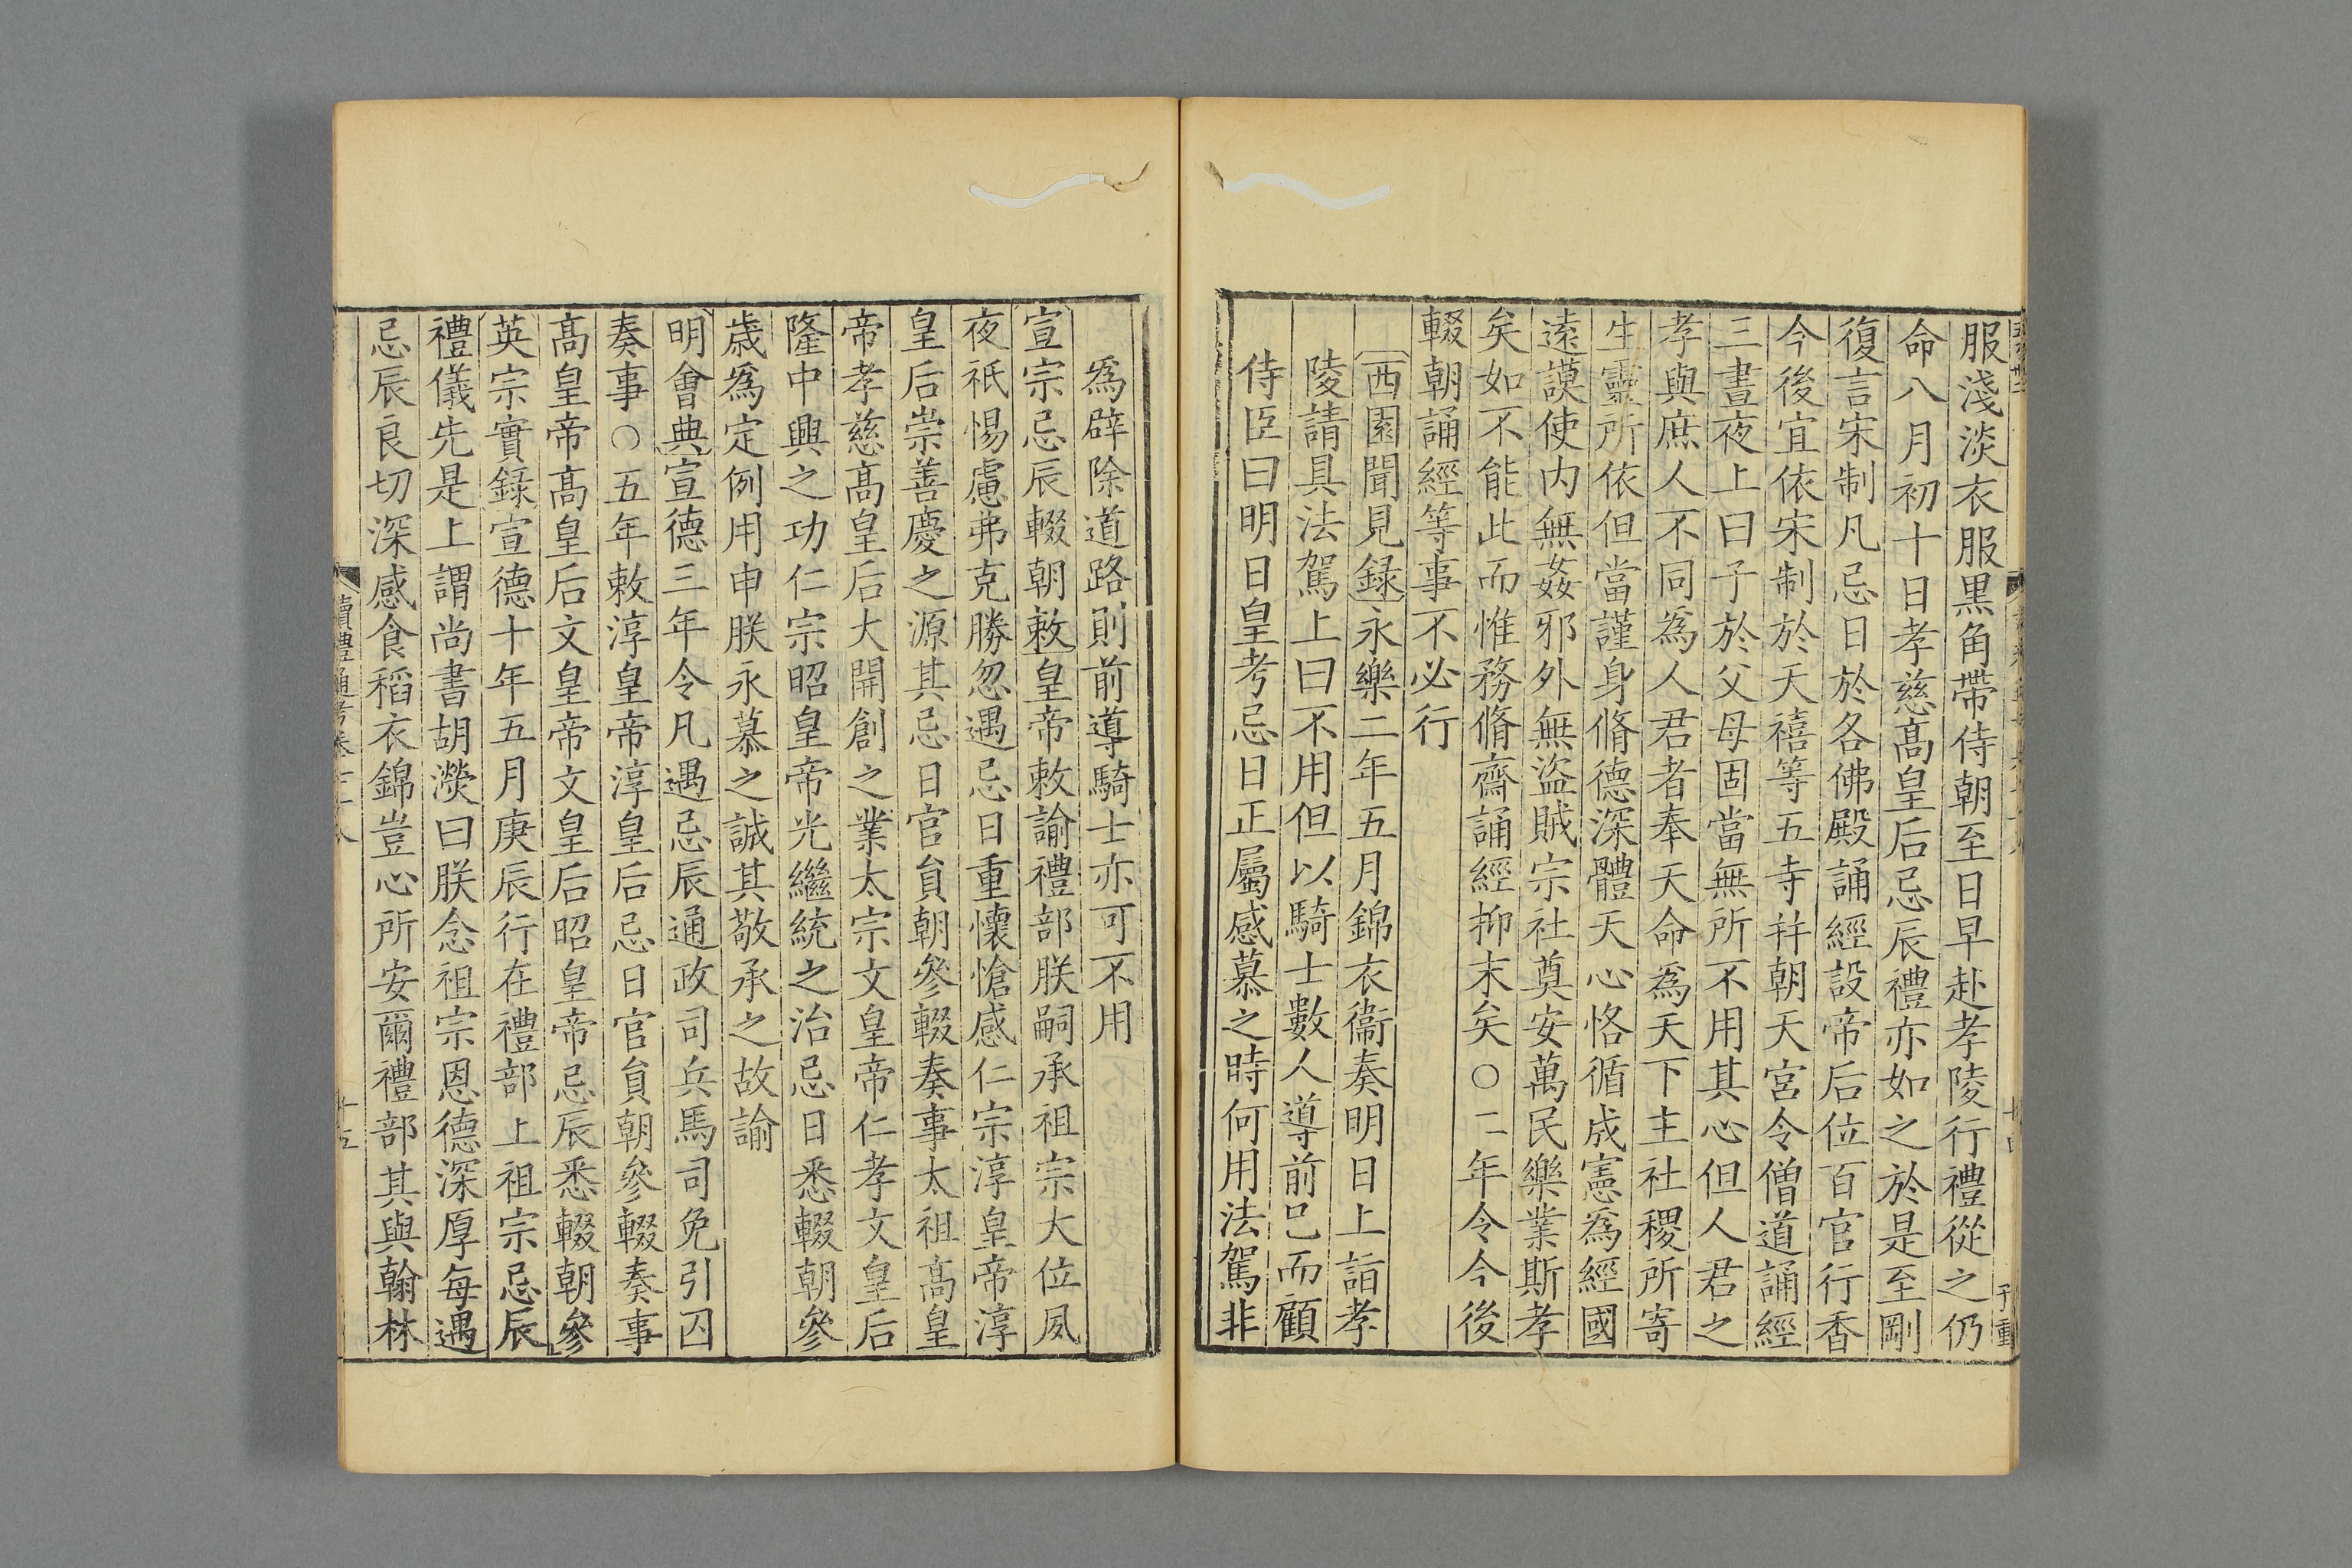 服淺淡衣服黒角帶侍朝至日早赴孝陵行禮從之仍
命八月初十日孝慈髙皇后忌辰禮亦如之於是至剛
復言宋制凡忌日於各佛殿誦經設帝后位百官行香
今後宜依宋制於天禧等五寺并朝天宮令僧道誦經
三晝夜上曰子於父母固當無所不用其心但人君之
孝與庶人不同為人君者奉天命為天下主社稷所寄
生靈所依但當謹身脩德深體天心恪循成憲為經國
遠謨使内無姦邪外無盜賊宗社奠安萬民樂業斯孝
矣如不能此而惟務脩齋誦經抑末矣○二年令今後
輟朝誦經等事不必行
西園聞見録永樂二年五月錦衣衞奏明日上詣孝
陵請具法駕上曰不用但以騎士數人導前已而顧
侍臣曰明日皇考忌日正屬感慕之時何用法駕非
為辟除道路則前導騎士亦可不用
宣宗忌辰輟朝敕皇帝敕諭禮部朕嗣承祖宗大位夙
夜祇惕慮弗克勝忽遇忌日重懷愴感仁宗淳皇帝淳
皇后崇善慶之源其忌日官貟朝參輟奏事太祖髙皇
帝孝慈髙皇后大開創之業太宗文皇帝仁孝文皇后
隆中興之功仁宗昭皇帝光繼統之治忌日悉輟朝參
歲為定例用申朕永慕之誠其敬承之故諭
明會典宣德三年令凡遇忌辰通政司兵馬司免引囚
奏事○五年敕淳皇帝淳皇后忌日官貟朝參輟奏事
髙皇帝髙皇后文皇帝文皇后昭皇帝忌辰悉輟朝參
英宗實録宣德十年五月庚辰行在禮部上祖宗忌辰
禮儀先是上謂尚書胡濙曰朕念祖宗恩德深厚每遇
忌辰良切深感食稻衣錦豈心所安爾禮部其與翰林
讀禮通考卷